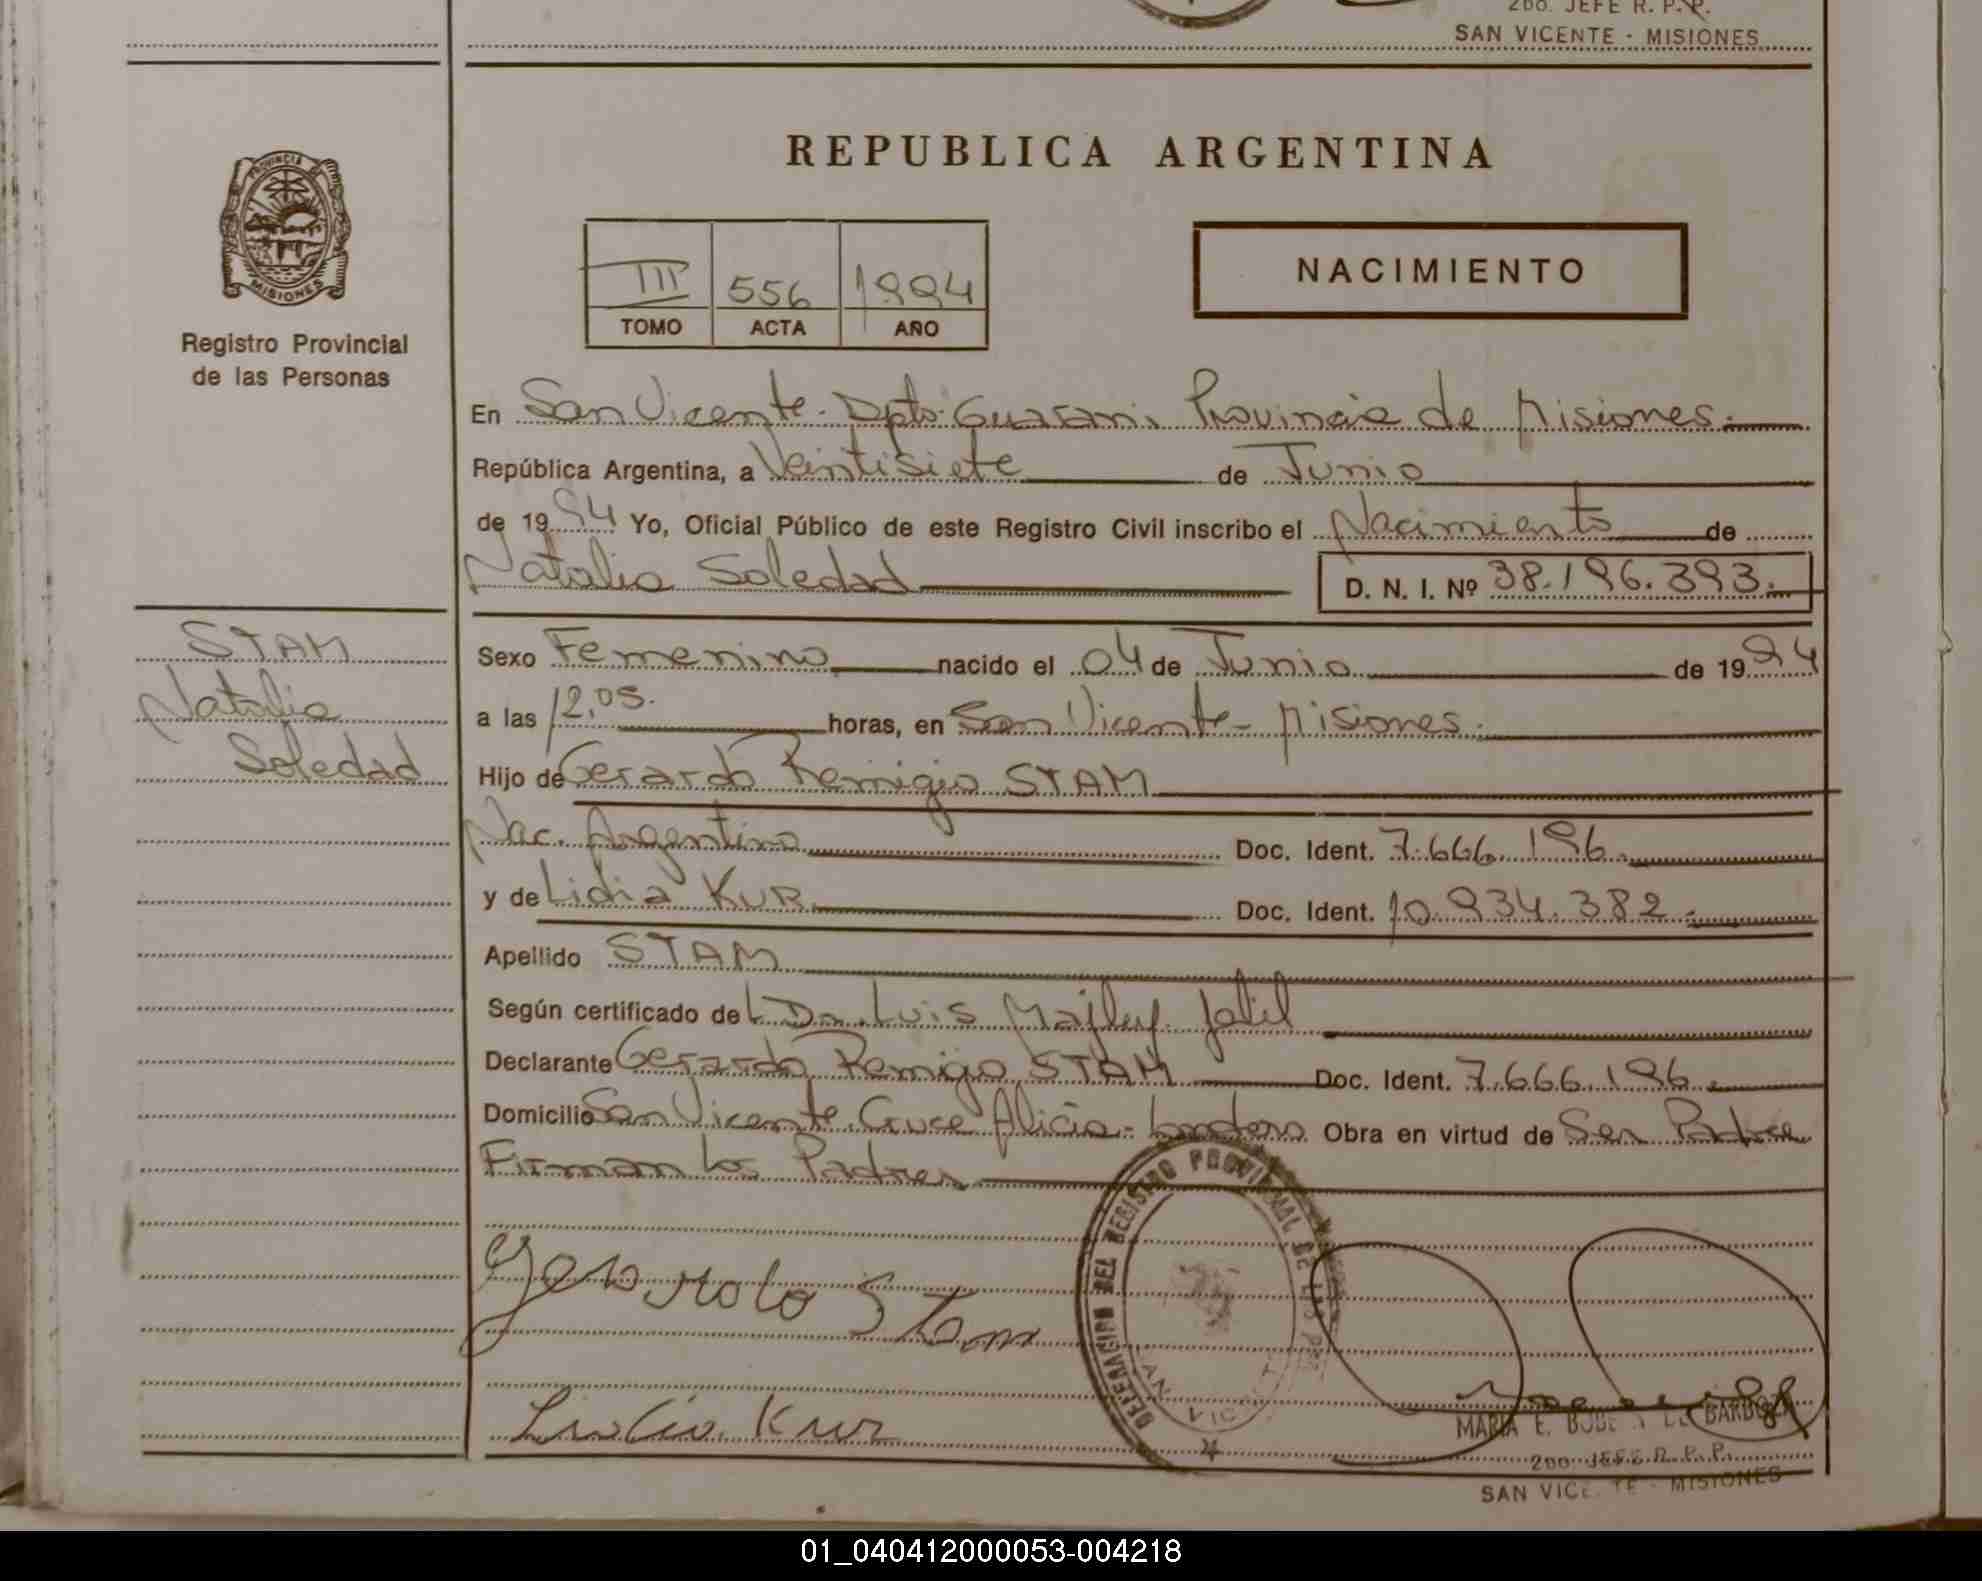 2DO. JEFE R. P. P.
SAN VICENTE - MISIONES
REPUBLICA ARGENTINA
PROVINCIA DE MISIONES
Registro Provincial
de las Personas
III 556 1994
TOMO ACTA AÑO
NACIMIENTO
En San Vicente. Dpto. Guarani. Provincia de Misiones.
República Argentina, a Veintisiete de Junio
de 1994 Yo, Oficial Público de este Registro Civil inscribo el Nacimiento de
Natalia Soledad D. N. I. Nº 38.196.393.
STAM
Natalia
Soledad
Sexo Femenino nacido el 04 de Junio de 1994
a las 12,05. horas, en San Vicente - Misiones.
Hijo de Gerardo Remigio STAM
Nac. Argentino Doc. Ident. 7.666.196.
y de Lidia KUR Doc. Ident. 10.934.382.
Apellido STAM
Según certificado del Dr. Luis Jalil
Declarante Gerardo Remigio STAM Doc. Ident. 7.666.196.
Domicilio San Vicente. Cruce Alicia - Obra en virtud de Ser Padre
Firman los Padres
DELEGACION DEL REGISTRO PROVINCIAL DE LAS PER
SAN VICENTE
Gerardo Stam
Lidia Kur
MARIA E. DE BARBOZA
2DO. JEFE R. P. P.
SAN VICENTE - MISIONES
01_040412000053-004218